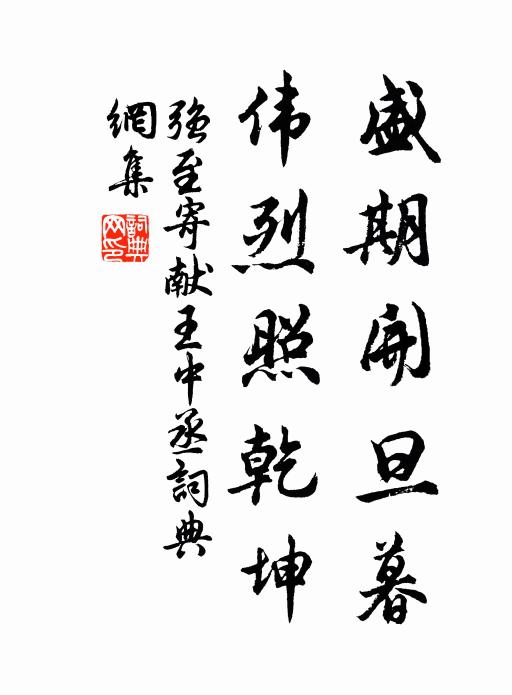 盛期開旦暮
伟烈照乾坤
强至寄献王中丞詞典
網集
詞典网印